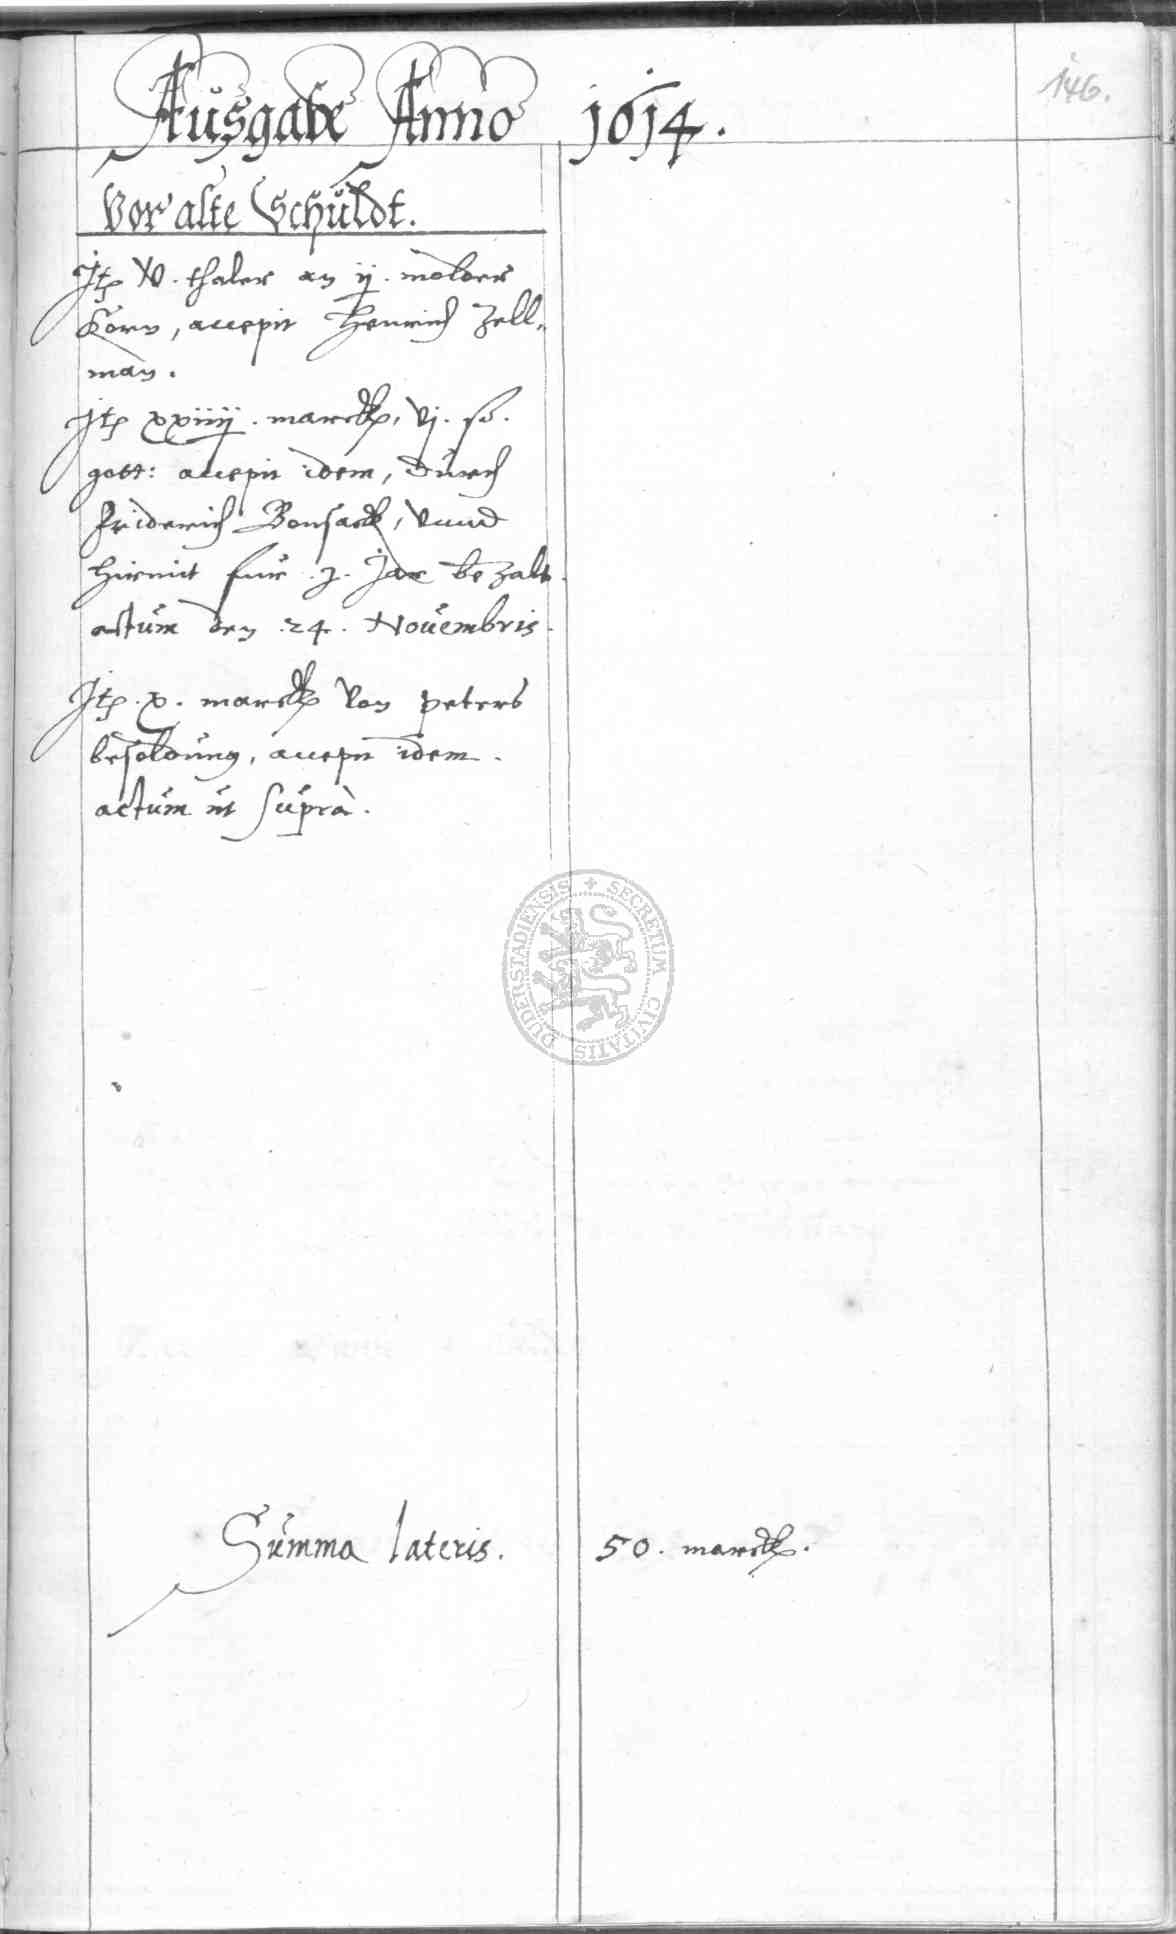 146.
Ausgabe Anno 1614.
Vor alte Schuldt.
Itp v. thaler an ij. molder
Korn, accepit Henrich Zell-
man.
Itp xxiiij. marck, vj. ß.
gott: accepit idem, durch
Friderich Bonsack, vnnd
hiemit fur .j. Jar bezalt.
actum den 24. Nouembris.
Itp x. marck von peters
besoldung, accepit idem.
actum ut suprà.
DUDERSTADIENSIS + SECRETUM CIVITATIS
Summa lateris. 50. marck.